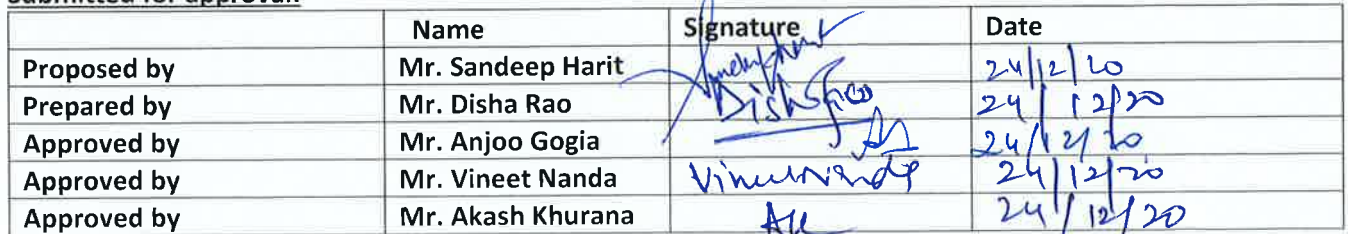 Submitted for approval:
Name Signature Date
Proposed by Mr. Sandeep Harit 24/12/20
Prepared by Mr. Disha Rao Disha Rao 24/12/20
Approved by Mr. Anjoo Gogia 24/12/20
Approved by Mr. Vineet Nanda Vineet Nanda 24/12/20
Approved by Mr. Akash Khurana AK 24/12/20